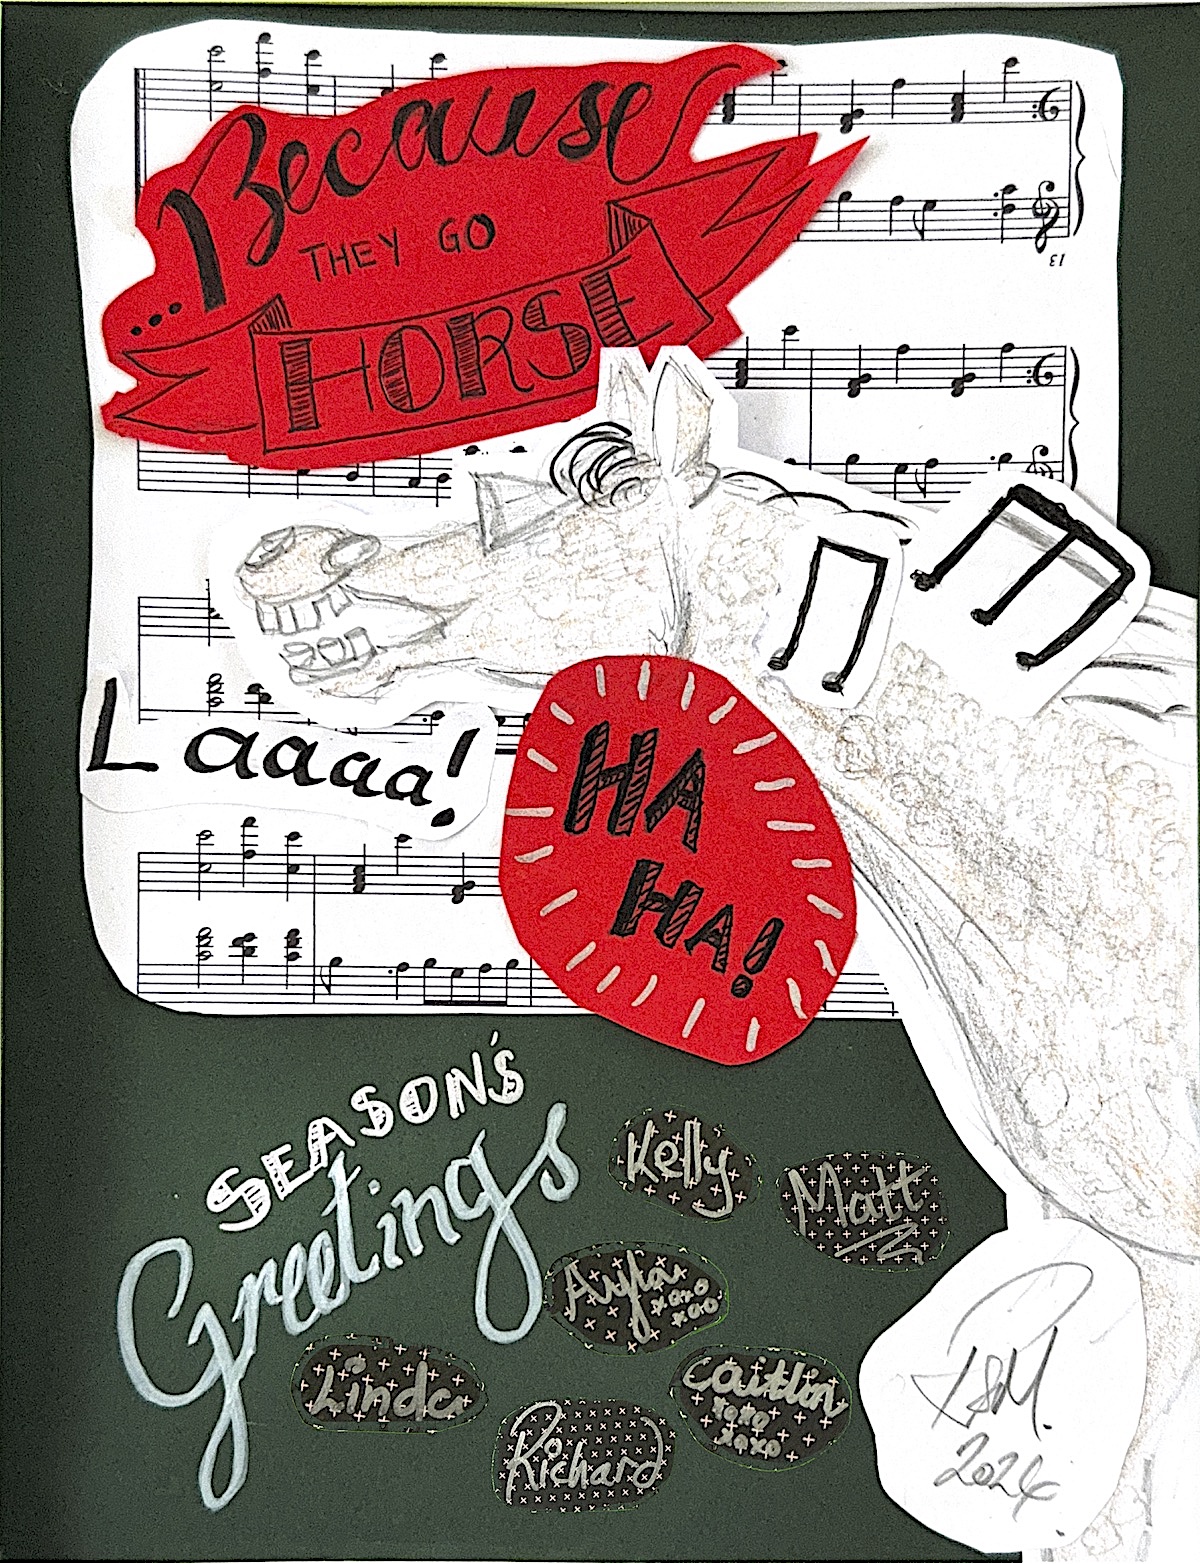 ...Because
THEY GO
HORSE
13
Laaaa!
HA
HA!
SEASON'S
Greetings
Kelly
Matt
xoxo
xoo
Linda
Caitlin
xoxo
xoxo
Richard
2024